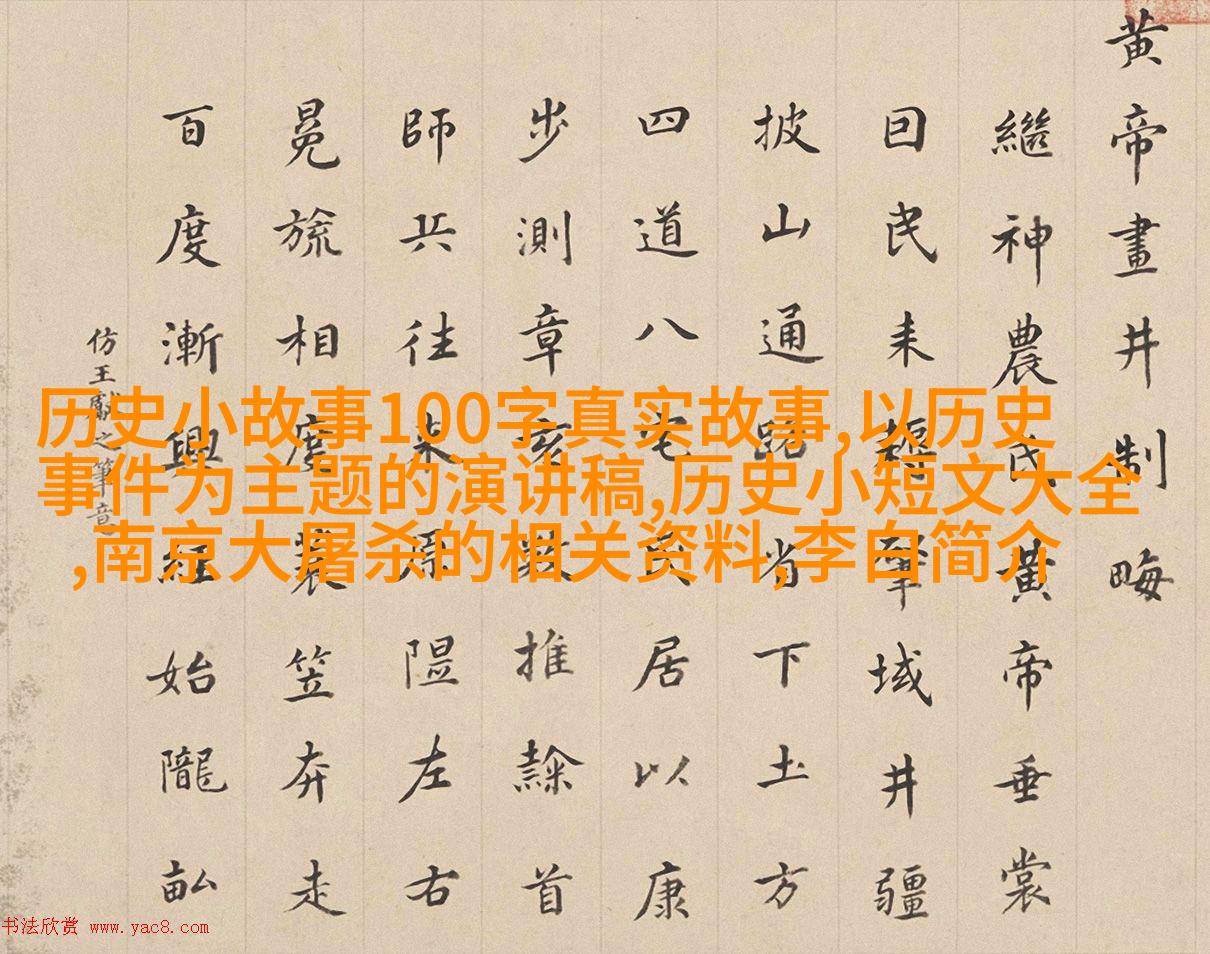 黄帝畫井制畮
繼神農氏黄帝垂裳
囙民耒耜肇域井疆
披山通路省下土方
四道八宅奠居以康
步測章亥數推隸首
師兵往來原隰左右
冕旒相度蓑笠奔走
百度漸興經始隴畝
仿王獻之筆意
历史小故事100字真实故事,以历史
事件为主题的演讲稿,历史小短文大全
,南京大屠杀的相关资料,李白简介
书法欣赏 www.yac8.com